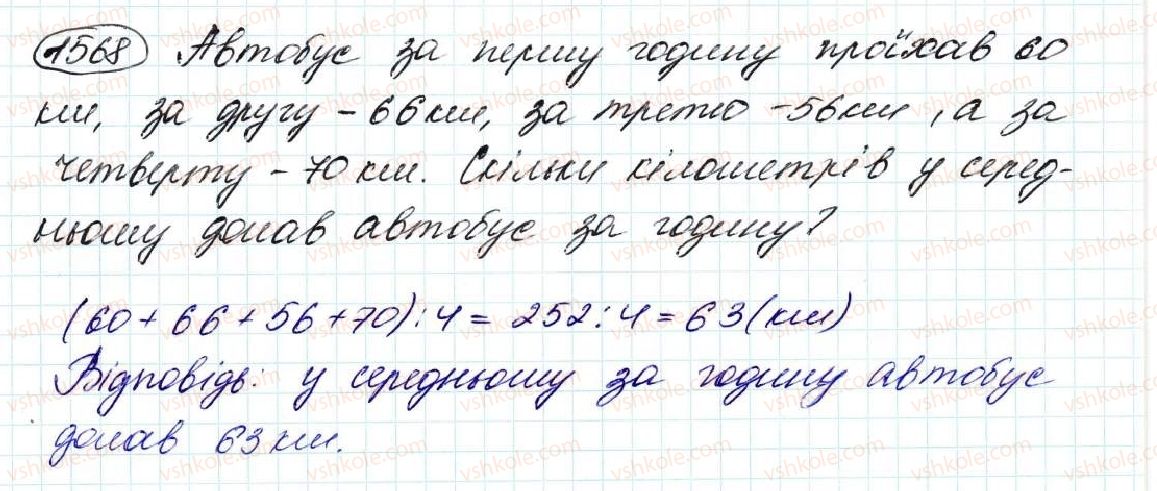 1568 Автобус за першу годину проїхав 60
км, за другу - 66 км, за третю - 56 км, а за
четверту - 70 км. Скільки кілометрів у серед-
ньому долав автобус за годину?
(60 + 66 + 56 + 70) : 4 = 252 : 4 = 63 (км)
Відповідь: у середньому за годину автобус
долав 63 км.